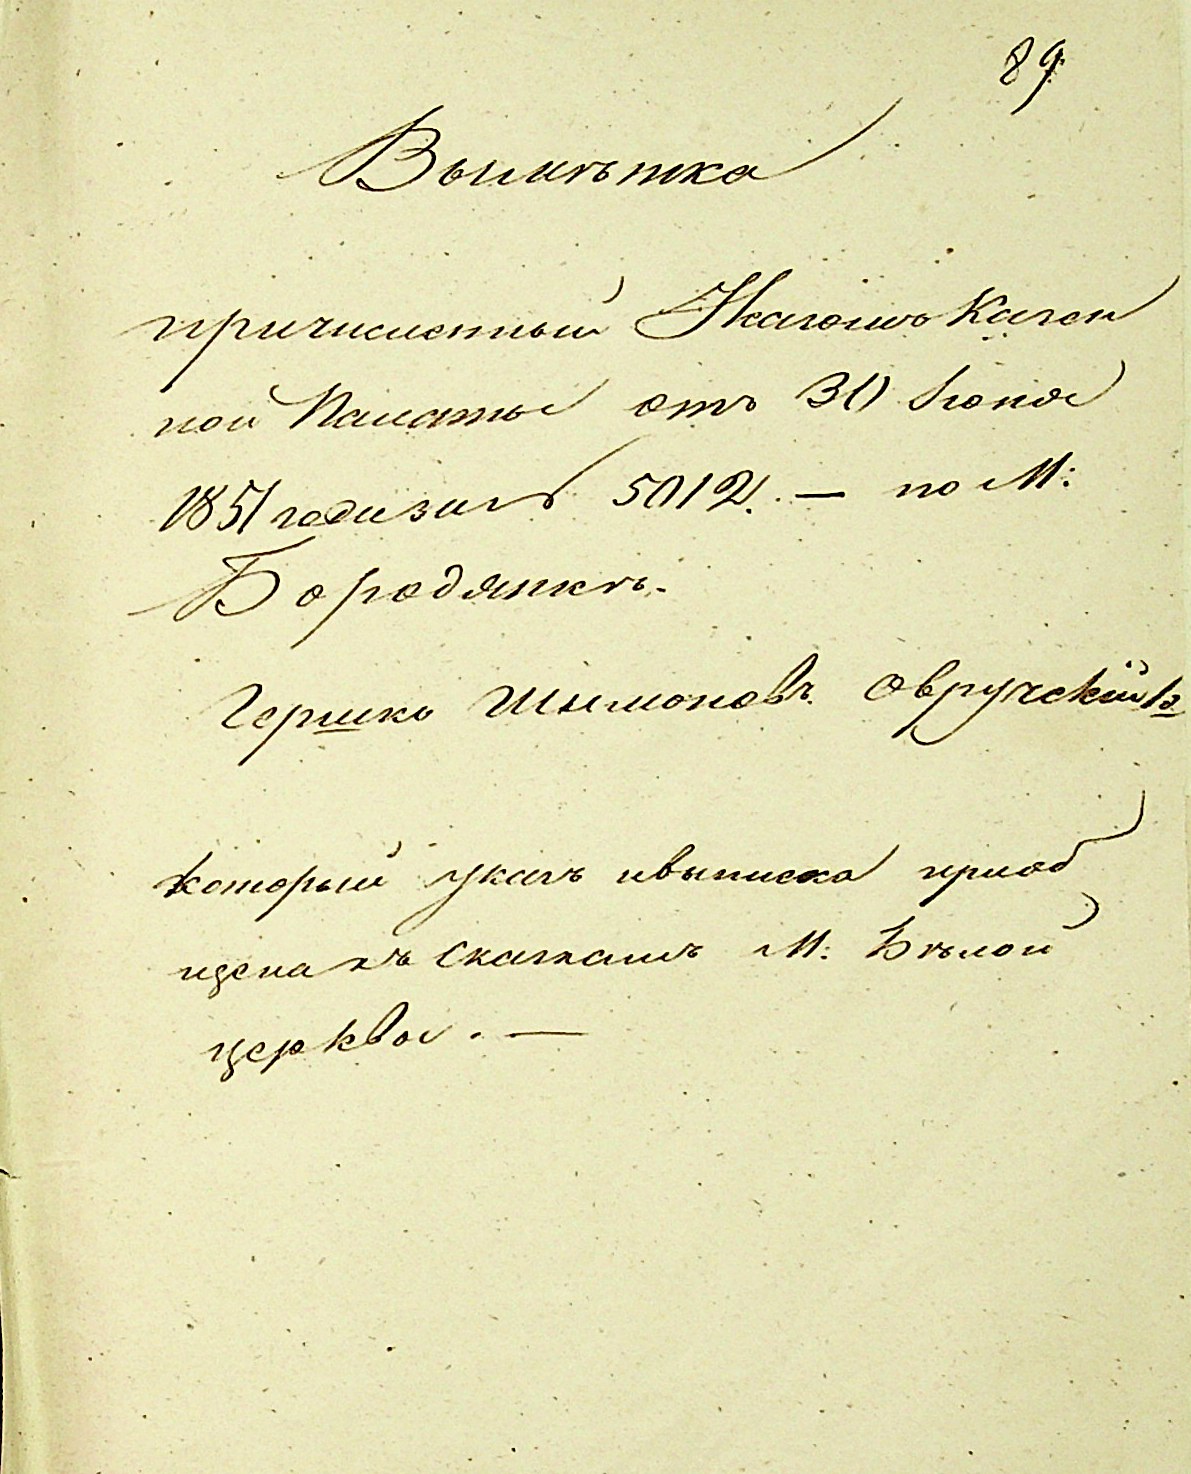 89
Вымѣтка
причисленный Указомъ Казен
ной Палаты отъ 30 Іюня
1851 года за № 5012. — по М:
Бородянкѣ.
Гершко Шимоновъ Овручскій
который указъ и выписка приоб
щена къ сказкамъ М: Бѣлой
церквы. —